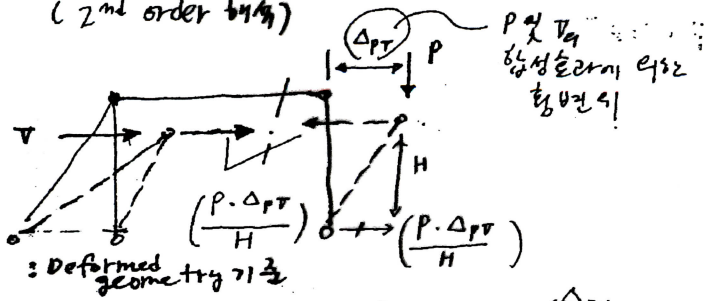 (2nd order 해석)
Δ_PV
P
P 및 V의
합성효과에 의한
횡변위
V
H
(P·Δ_PV / H)
(P·Δ_PV / H)
: Deformed
geometry 기준